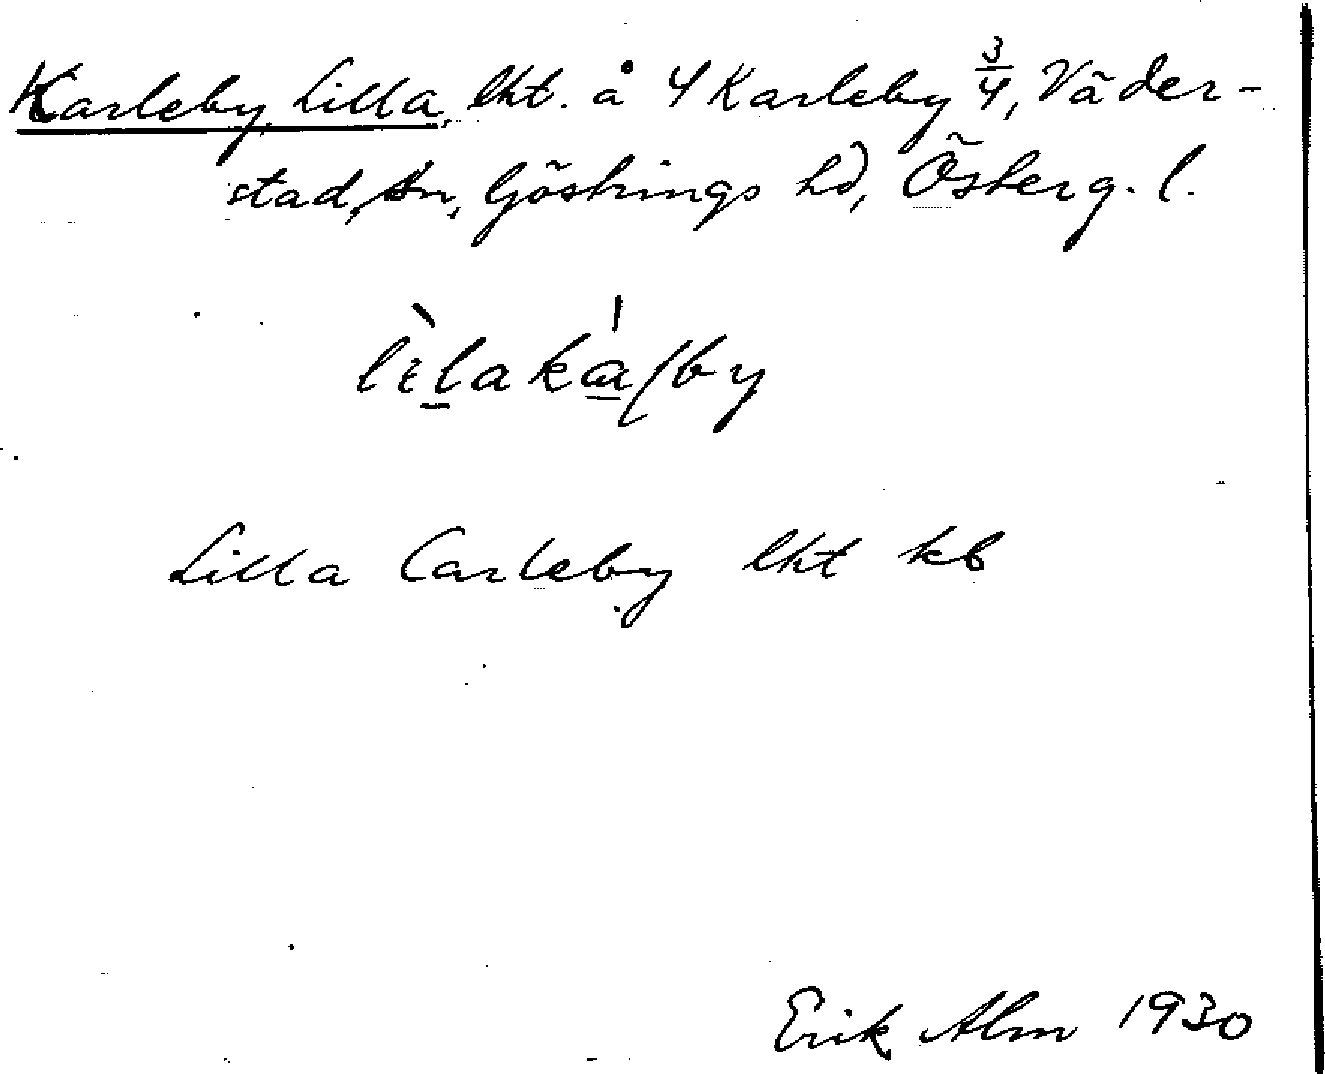 Karleby, Lilla, lht. å 4 Karleby 3/4, Väder-
stad, sn, Göstrings hd, Österg. l.
lèlakálby
Lilla Carleby lht kb
Erik Alm 1930